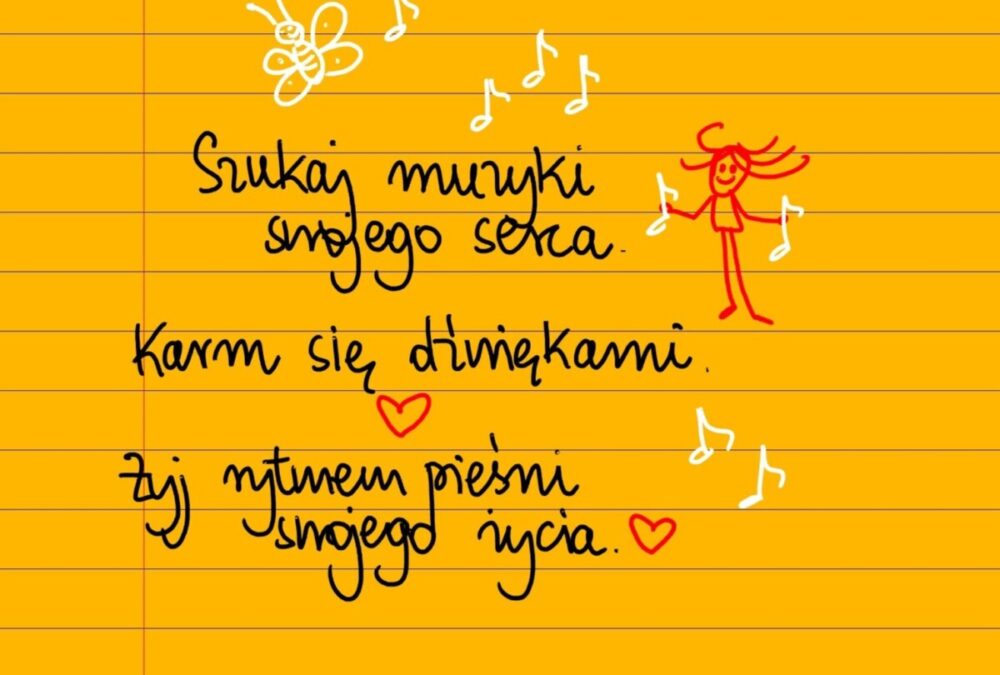 Szukaj muzyki
swojego serca.
Karm się dźwiękami.
Żyj rytmem pieśni
swojego życia.